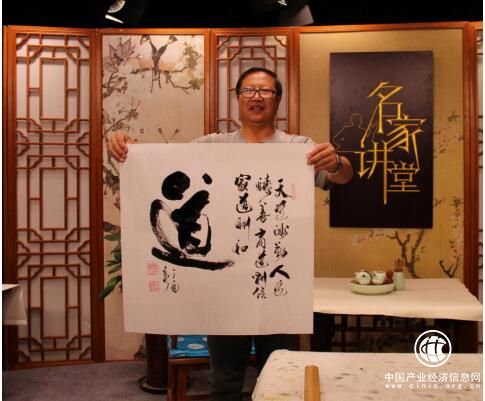 道
天道酬勤人道
酬善商道酬信
家道酬和
名家讲堂
中国产业经济信息网
www.cinic.org.cn